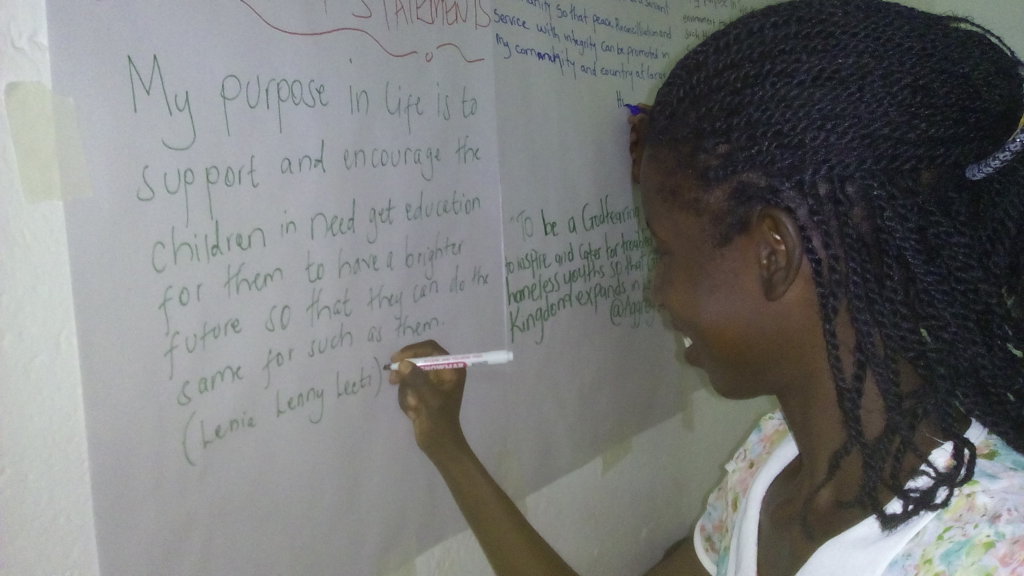 STATEMENTS
My purpose in life is to
support and encourage the
children in need get education
for them to have a brighter
future so that they can do the
same for such as them.
(Lenie Lenny Leeti)
so that peace Reconciliation and
service with integrity can be promoted in
my community and country at large
"To be a Godfearing
to inspire and cater for
homeless youths so that
Kingdom expands in